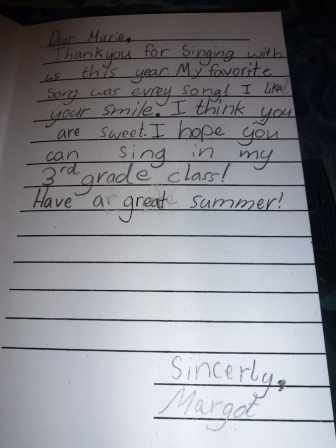 Dear Marie,
Thankyou for singing with
us this year. My favorite
song was evrey song! I like
your smile. I think you
are sweet. I hope you
can sing in my
3rd grade class!
Have a great summer!
Sincerly,
Margot